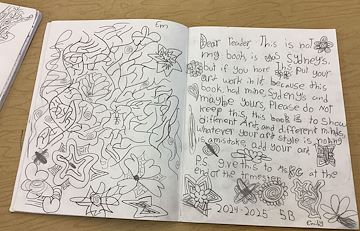 5m
Dear Reader This is not
my book, is Sydneys,
but if you have this put your
art work in it because this
book had mine, Sydenys and
maybe yours, Please do not
keep this, this book is to show
different Art, and different minds,
whatever your art style is nothing
is a mistake, add your art
P.S give this to at the
end of the trimester
2024-2025 5B
Emily